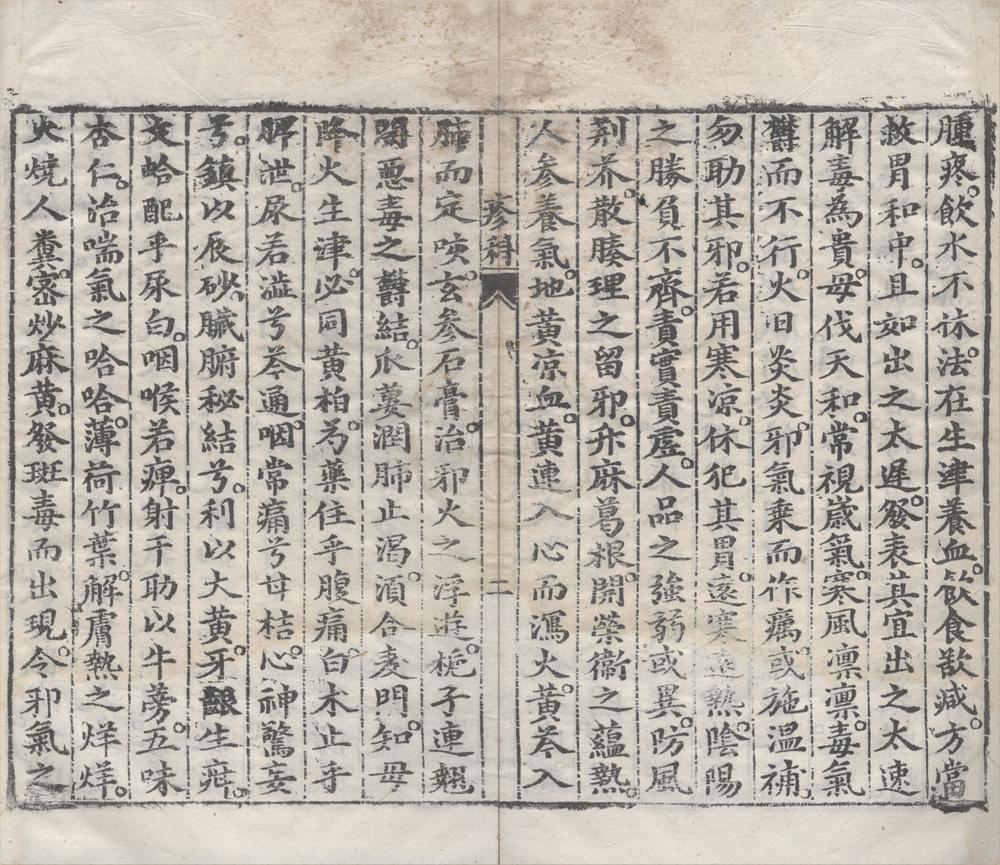 腫疼飲水不休法在生津養血飲食歆减方當
救胃和中且如出之太遲發表其宜出之太速
解毒為貴毋伐天和常視歲氣寒風凛凛毒氣
欝而不行火日炎炎邪氣乗而作癘或施温補
勿助其邪若用寒凉休犯其胃遠寒遠熱陰陽
之勝負不齊責實責虛人品之強弱或異防風
荆芥散腠理之留邪升麻葛根開榮衛之蘊熱
人參養氣地黄凉血黄連入心而瀉火黄芩入
疹科 二
肺而定咳玄參石膏治邪火之浮遊梔子連翹
闢惡毒之欝結瓜蔞潤肺止渴須合麦門知母
降火生津必同黄柏芍藥住乎腹痛白木止乎
脾泄尿若澁兮芩通咽常痛兮甘桔心神驚妄
兮鎮以辰砂臟腑秘結兮利以大黄牙齦生疳
文蛤配乎尿白咽喉若痺射干助以牛蒡五味
杏仁治喘氣之哈哈薄荷竹葉解膚熱之烊烊
火燒人糞宻炒麻黄發斑毒而出現令邪氣之